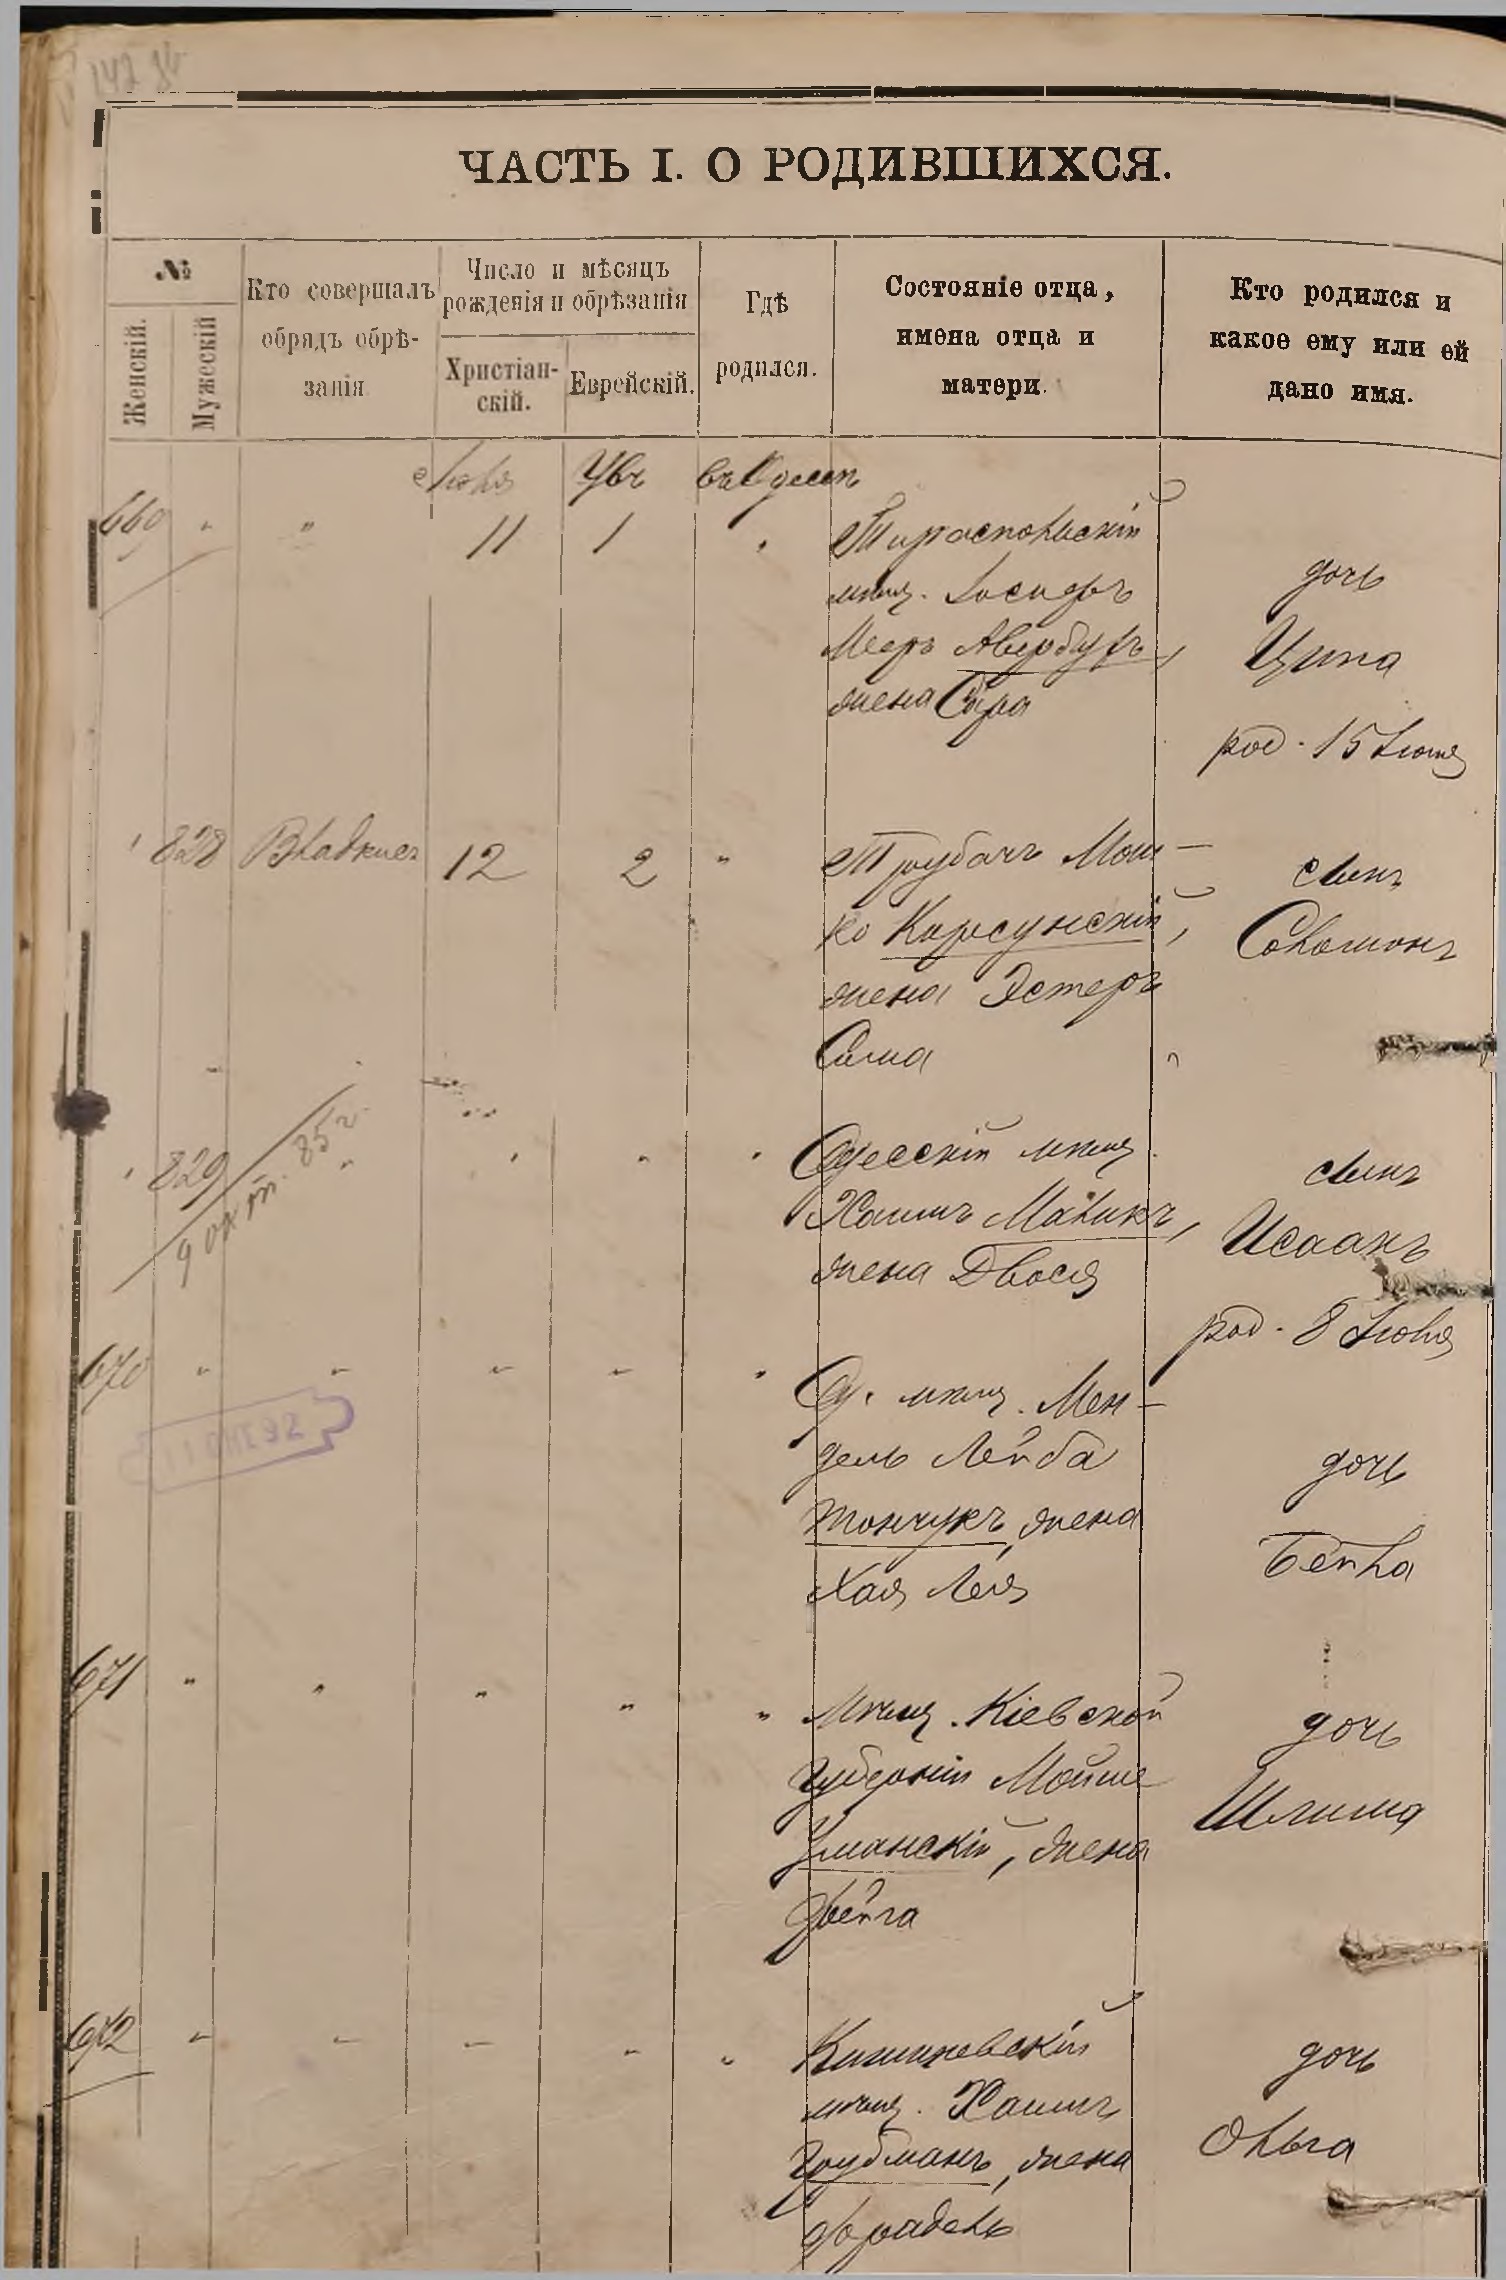 ЧАСТЬ I. О РОДИВШИХСЯ.
№
Женскій.
Мужескій
Кто совершалъ
обрядъ обрѣ-
занія
Число и мѣсяцъ
рожденія и обрѣзанія
Христіан-
скій.
Еврейскій.
Гдѣ
родился.
Состояніе отца,
имена отца и
матери.
Кто родился и
какое ему или ей
дано имя.
Іюля
въ Одессѣ
669 " " 11 1 "
Тираспольскій
мѣщ. Іосифъ
Меръ Авербухъ,
жена Сура
дочь
Ципа
род. 15 Іюня
" 828 12 2 "
Трубачъ Мош-
ко Корсунскій,
жена Эстеръ
Сима
сынъ
Соломонъ
" 829 " " " "
85 г.
Одесскій мѣщ.
Хаимъ Маликъ,
жена Двося
сынъ
Исаакъ
род. 8 Іюля
670 " " " " "
Од. мѣщ. Мен-
дель Лейба
Тончукъ, жена
Хая Лея
дочь
Бейла
671 " " " " "
Мѣщ. Кіевской
губерніи Мойше
Уманскій, жена
Фейга
дочь
Шлима
672 " " " " "
Кишиневскій
мѣщ. Хаимъ
Грубманъ, жена
Фрадель
дочь
Ольга